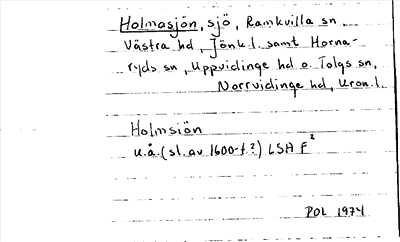 Holmasjön, sjö, Ramkvilla sn,
Västra hd, Jönk.l. samt Horna-
ryds sn, Uppvidinge hd o. Tolgs sn,
Norrvidinge hd, Kron.l.
Holmsiön
u.å. (sl. av 1600-t.?) LSA F²
POL 1974